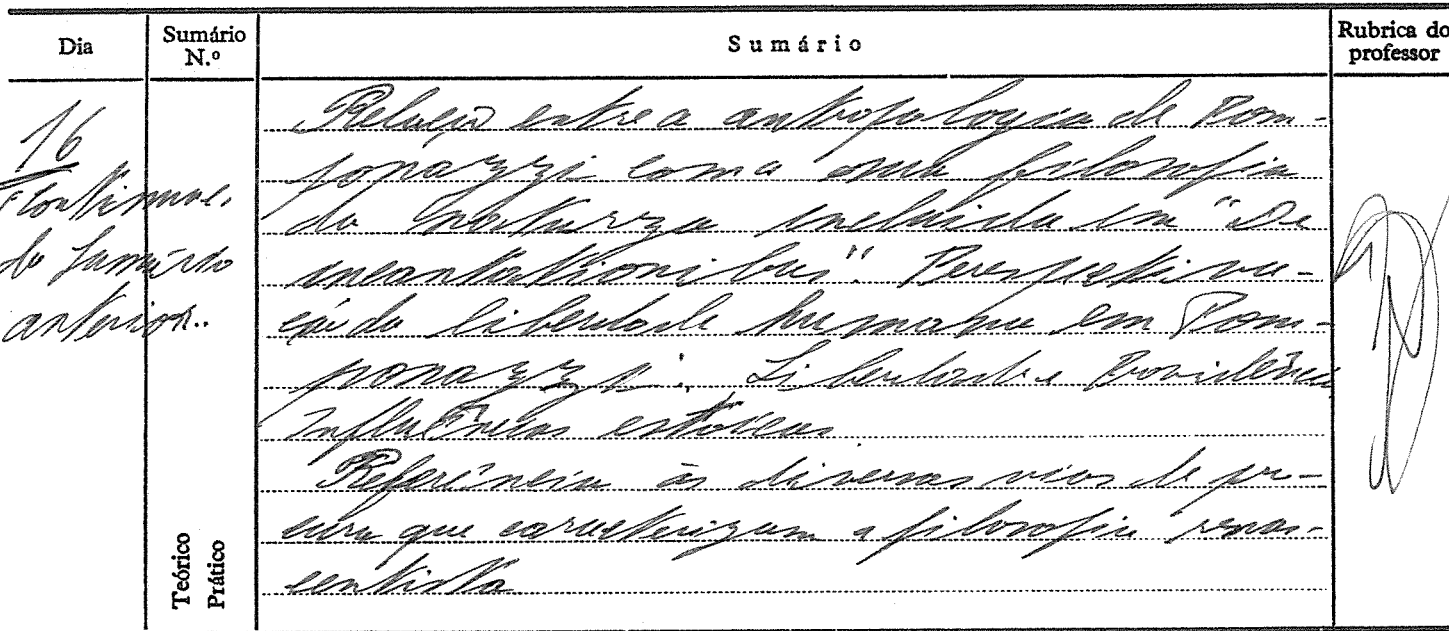 Dia
Sumário N.º
Sumário
Rubrica do professor
16
Continuac.
do Sumário
anterior..
Relação entre a antropologia de Pom-
ponazzi com a sua filosofia
da natureza incluida em "De
incantationibus". Perspectiva-
ção da liberdade humana em Pom-
ponazzi: Liberdade e Providência
Influências estoicas
Referência às diversas vias de pro-
cura que caracterizam a filosofia renas-
centista
Teórico
Prático